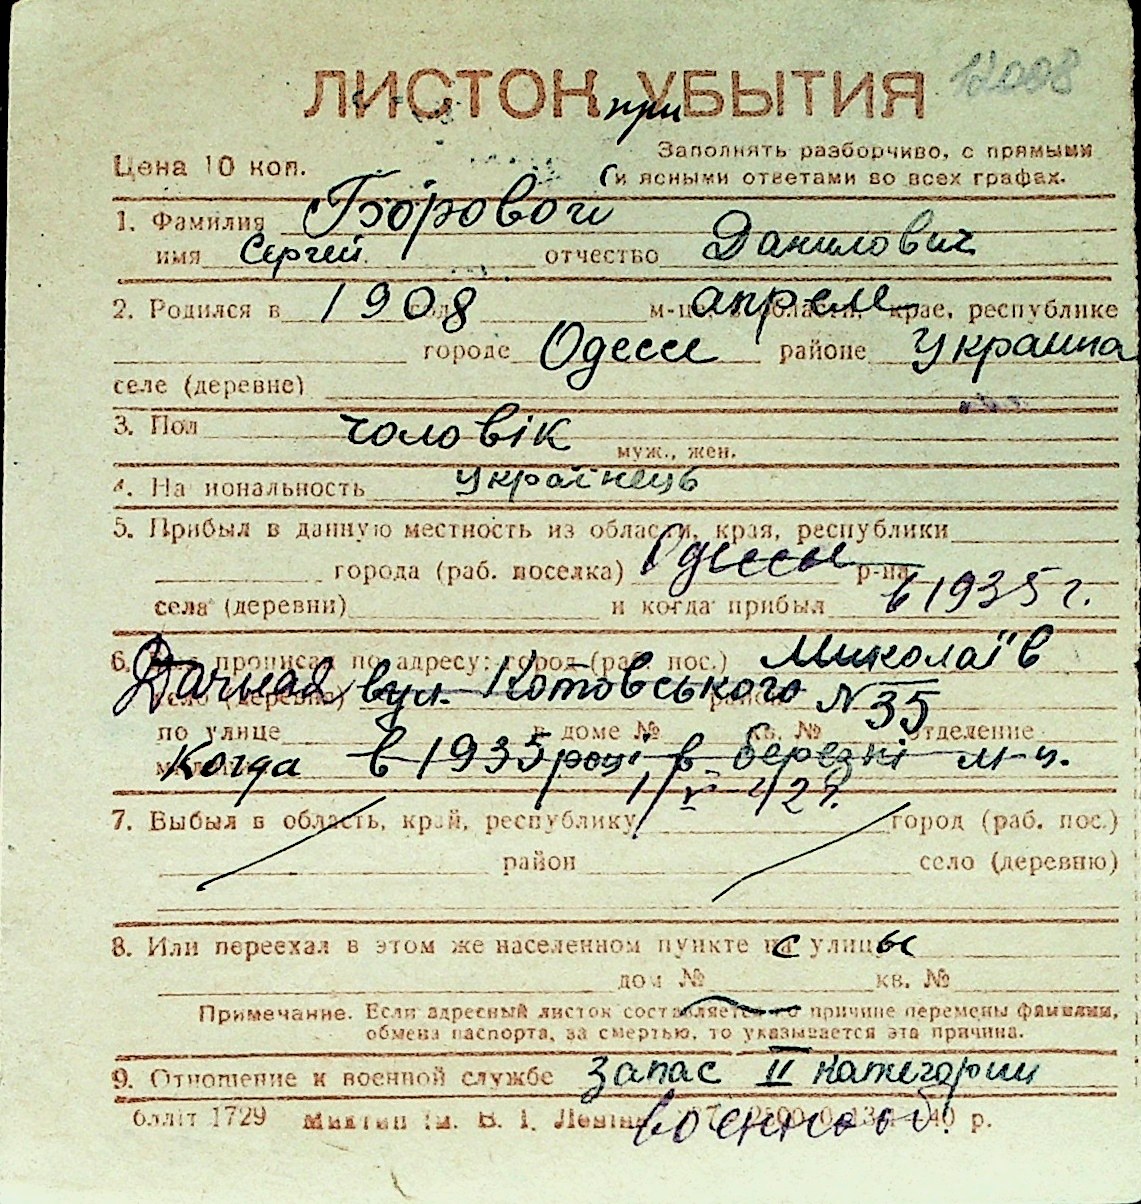 ЛИСТОК УБЫТИЯ 12008
при
Цена 10 коп.
Заполнять разборчиво, с прямыми
и ясными ответами во всех графах.
1. Фамилия Боровой
имя Сергей отчество Данилович
2. Родился в 1908 м-це апреле крае, республике
городе Одессе районе Украина
селе (деревне)
3. Пол чоловік муж., жен.
4. На иональность українець
5. Прибыл в данную местность из области, края, республики
города (раб. поселка) Одессы р-на
села (деревни) и когда прибыл в 1935 г.
6. прописан по адресу: город (раб. пос.) Миколаїв
Дачная вул. Котовського № 35
по улице в доме № кв. № отделение
Когда в 1935 році в березні м-ц.
7. Выбыл в область, край, республику город (раб. пос.)
район село (деревню)
8. Или переехал в этом же населенном пункте с улицы
дом № кв. №
Примечание. Если адресный листок составляется по причине перемены фамилии,
обмена паспорта, за смертью, то указывается эта причина.
9. Отношение к военной службе Запас II категории
военный
1729 В. І. Леніна 40 р.